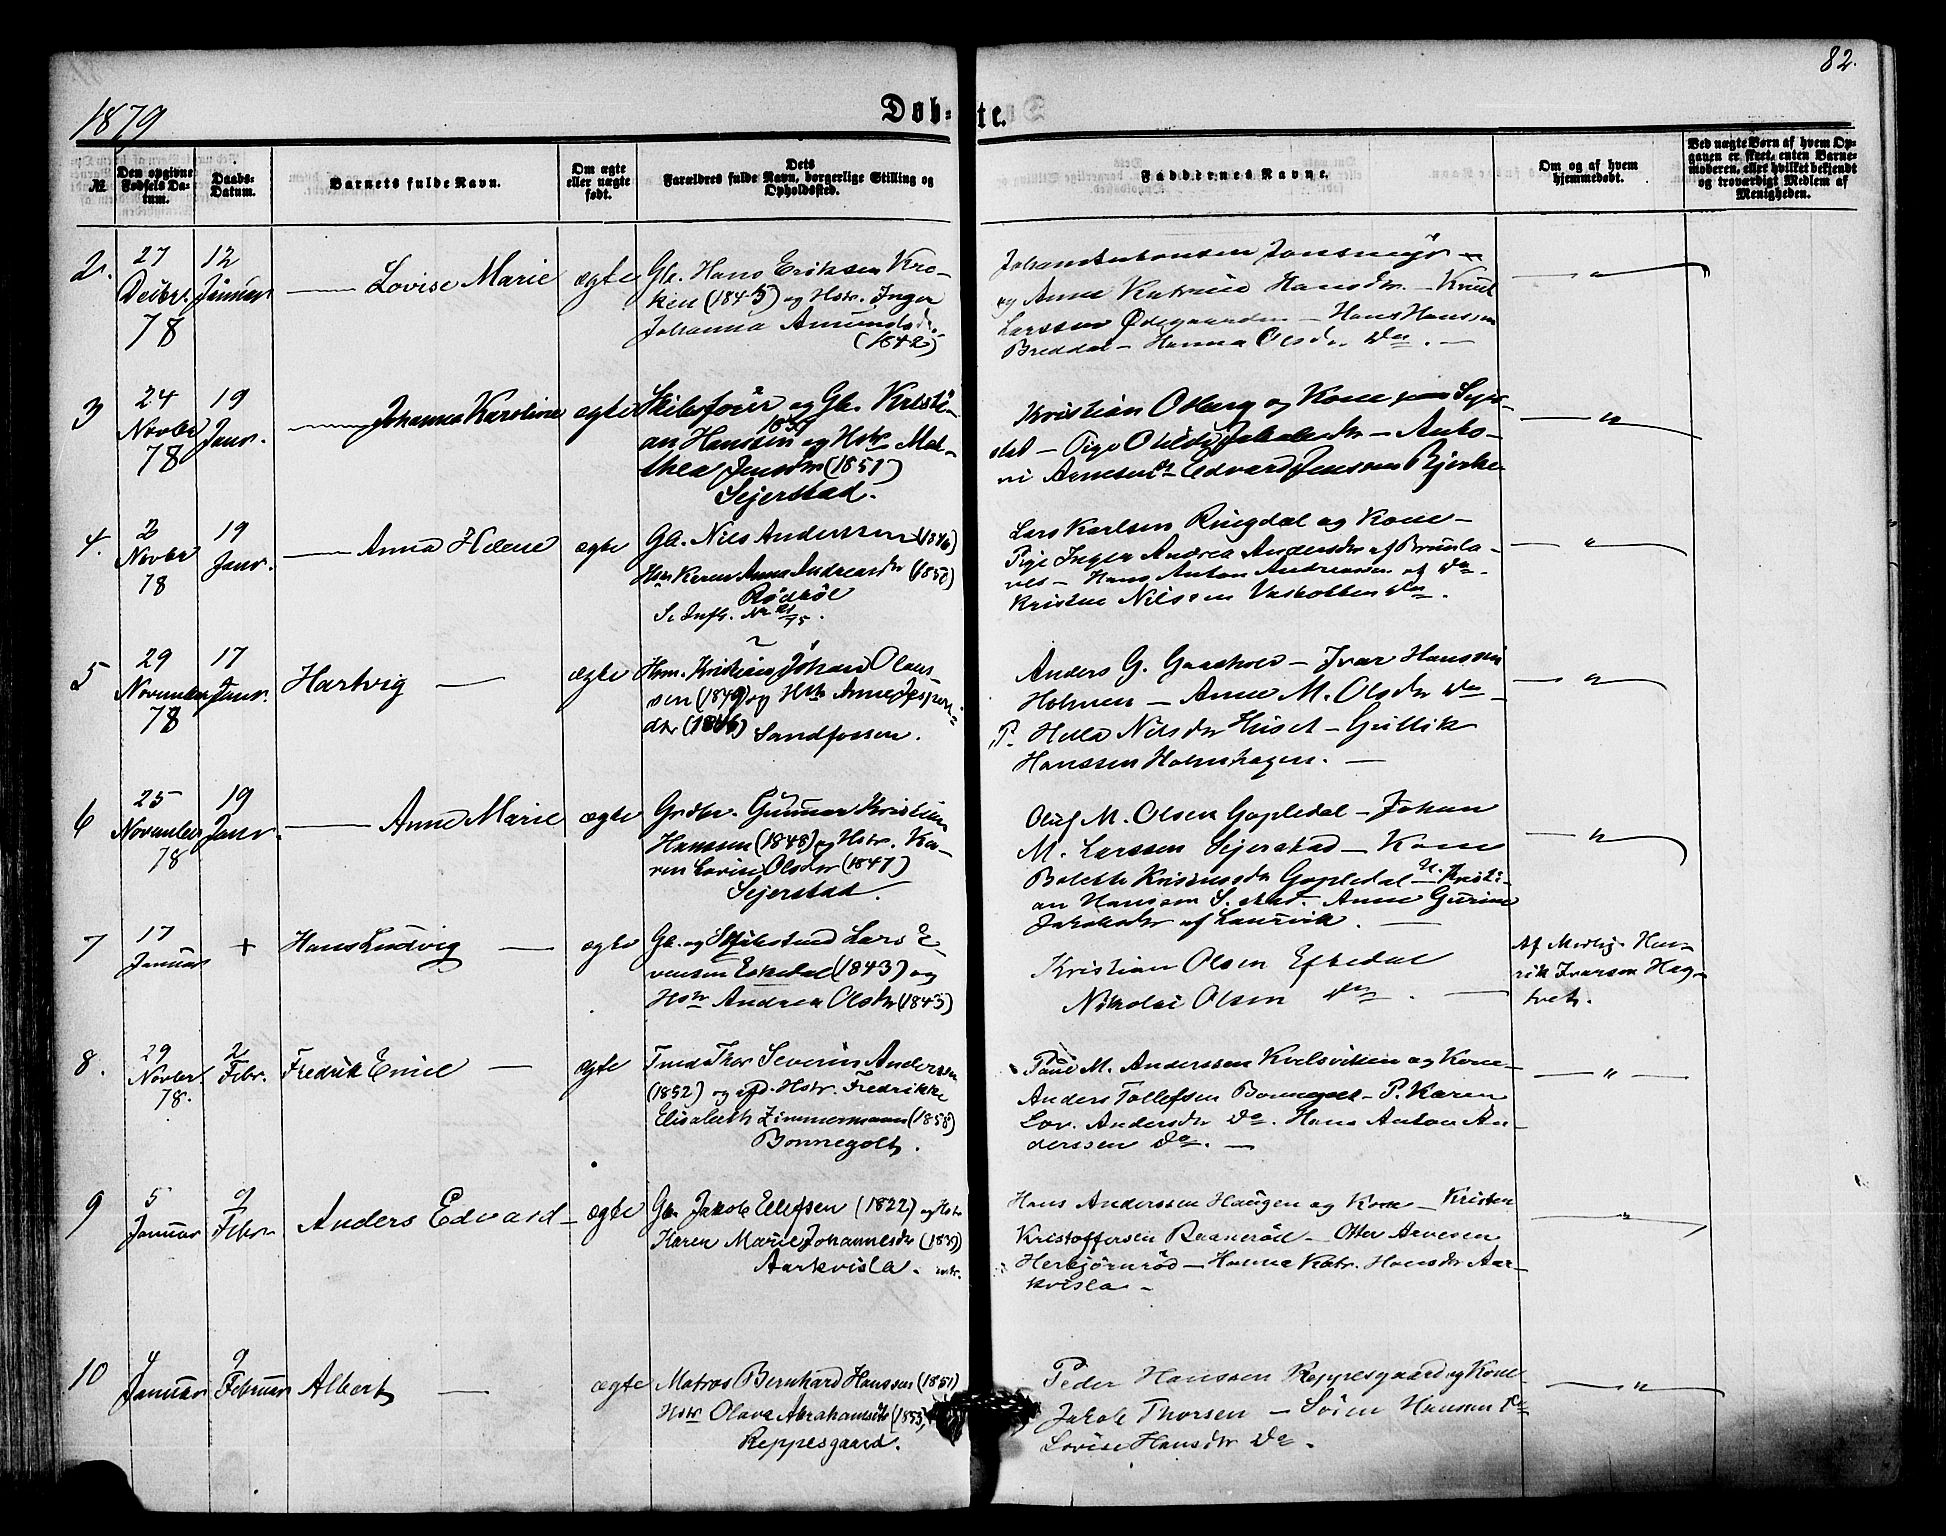 82.
1879
Døb- te.
№
Den opgivne Fødsels Datum.
Daabs-Datum.
Barnets fulde Navn.
Om ægte eller uægte født.
Dets Forældres fulde Navn, borgerlige Stilling og Opholdssted.
Faddernes Navne.
Om og af hvem hjemmedøbt.
Ved uægte Børn af hvem Opgaven er skeet, enten Barnemoderen, eller hvilket bekjendt og troværdigt Medlem af Menigheden.
2. 27 Decbr. 78 12 Januar Lovise Marie ægte
Gb. Hans Eriksen Kro-
ken (1845) og Hstr. Inger
Johanna Amundsdr.
(1842)
og Anne Katrine Hansdr. - Knud
Larssen Ødegaarden - Hans Hanssen
Breddal - Hanna Olsdr. do. -
3 24 Novbr 78 19 Janr. Johanna Karoline ægte
og Gb. Kristi-
an Hanssen og Hstr Mat-
thea Jensdr (1851)
Sejerstad.
Kristian Oberg og Kone
- Pige Jakobsdr - Anto-
ni Arnesen Edvard Jenssen Bjerke
4. 2 Novbr 78 19 Janr. Anna Helene ægte
Gb. Nils Anderssen (1846)
Hstr Karen Anna Andreasdr (1850)
Rødbøl
Lars Karlsen Ringdal og Kone -
Pige Inger Andrea Andersdr af Brunla-
nes - Hans Anton Andreassen af do.
Nilssen do.
5 29 November 78 17 Janr. Hartvig ægte
Kristian Johan Olaus-
sen (1849) og Hstr Anne Jespers-
dtr (1846) Sandfossen.
Anders G. Gaasholt - Ivar Hanssen
Holmen - Anne M. Olsdr do -
P. Hella Nilsdr Huset - Gullik
Hanssen Holmshagen. -
6 25 November 78 19 Janr. Anne Marie ægte
Grdbr. Gunnar Kristian
Hanssen (1848) og Hstr. Ka-
ren Lovise Olsdr (1847)
Sejerstad.
Oluf M. Olsen Gopledal - Johan
M. Larssen Sejerstad - Kone
Bolette Gopledal U. Kristi-
an Hanssen S.stad. Anne Gurine
Jakobsdr af Laurvik. -
7 17 Januar + Hans Ludvig ægte
Gb. og Lars E-
vensen Eskedal (1843) og
Hstr Andrea Olsdr (1845)
Kristian Olsen Eftedal
Nikolai Olsen do. -
Af Hen-
rik Ivarsen Hag-
tvet.
8. 29 Novbr. 78. 2 Febr. Fredrik Emil ægte
Tmd Thor Severin Anderssen
(1852) og Hstr. Fredrikke
Elisabeth Zimmermann (1858)
Bonnegolt.
Paul M. Anderssen Kvelsviken og Kone -
Anders Tollefsen Bonnegolt - P. Karen
Lov. Andersdr do. Hans Anton An-
derssen do. -
9 5 Januar 9 Febr Anders Edvard ægte
Gbr Jakob Ellefsen (1822) og Hstr
Karen Marie Johannesdr
Aarkvisla.
Hans Anderssen Haugen og Kone - Kristen
Kristoffersen - Otter Arvesen
Herbjørnrød - Hanna Katr. Hansdr Aar-
kvisla -
10 4 Januar 9 Februar Albert ægte
Matros Bernhard Hanssen (1851)
Hstr Olava Abrahamsdtr (1853)
Reppesgaard.
Peder Hanssen Reppesgaard og Kone
Jakob Thorsen - Søren Hansen do
Lovise Hansdr do.